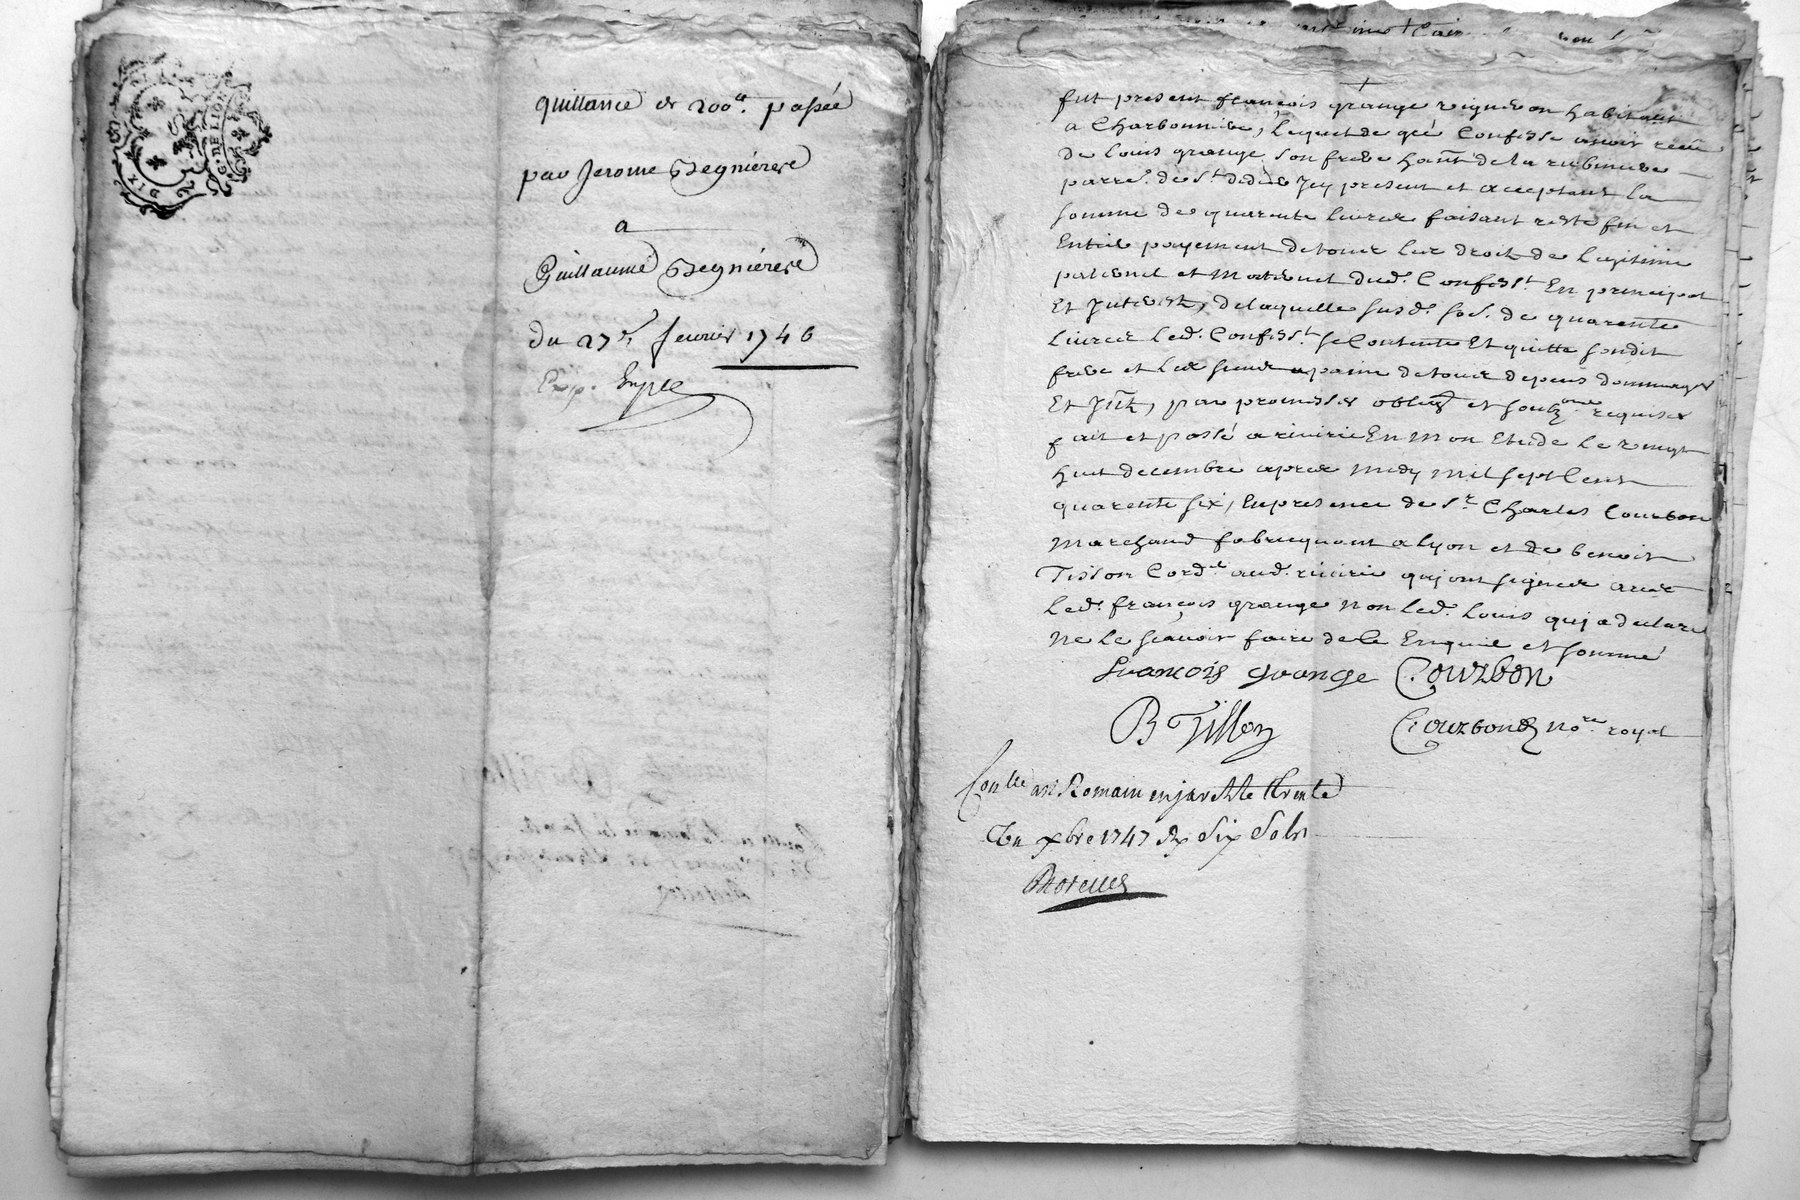 G. DE LION
DIX
quittance de 200ᵗᵗ. passée
par Jerome
a
Guillaume
du 27ᵉ. fevrier 1746
Exp.
fut present françois grange vigneron habitant
a Charbonniere, lequel de gré Confesse avoir reçu
de louis grange son frere hant̃ de la rubiniere
parre. de St. didier Jcy present et acceptant la
somme de quarente livres faisant reste fin et
Entier payement de tous les droits de legitime
paternel et Maternel dud. Confesst. En principal
Et Jnterest, de laquelle susd. so̅e. de quarente
Livres Led. Confesst. se Contente Et quitte sondit
frere et Les siens a paine de tous depens dommages
Et Jñt, par promesses obligõn et soub̃ons requises
fait et passé a riverie En Mon Etude Le vingt
huit decembre apres Midy Mil sept Cent
quarente six, En presence de Sr. Charles Courbon
Marchand fabriquant a Lyon et de benoit
Tisson Cord.er aud. riverie quj ont signes avec
Led. françois grange Non Led. Louis quj a declaré
Ne Le sçavoir faire de ce Enquie et sommé
françois grange Courbon
B Tisson
Courbon nore. royal
Conllé a St Romain en jarest le trente
Un xbre 1747 Rx Six Sols